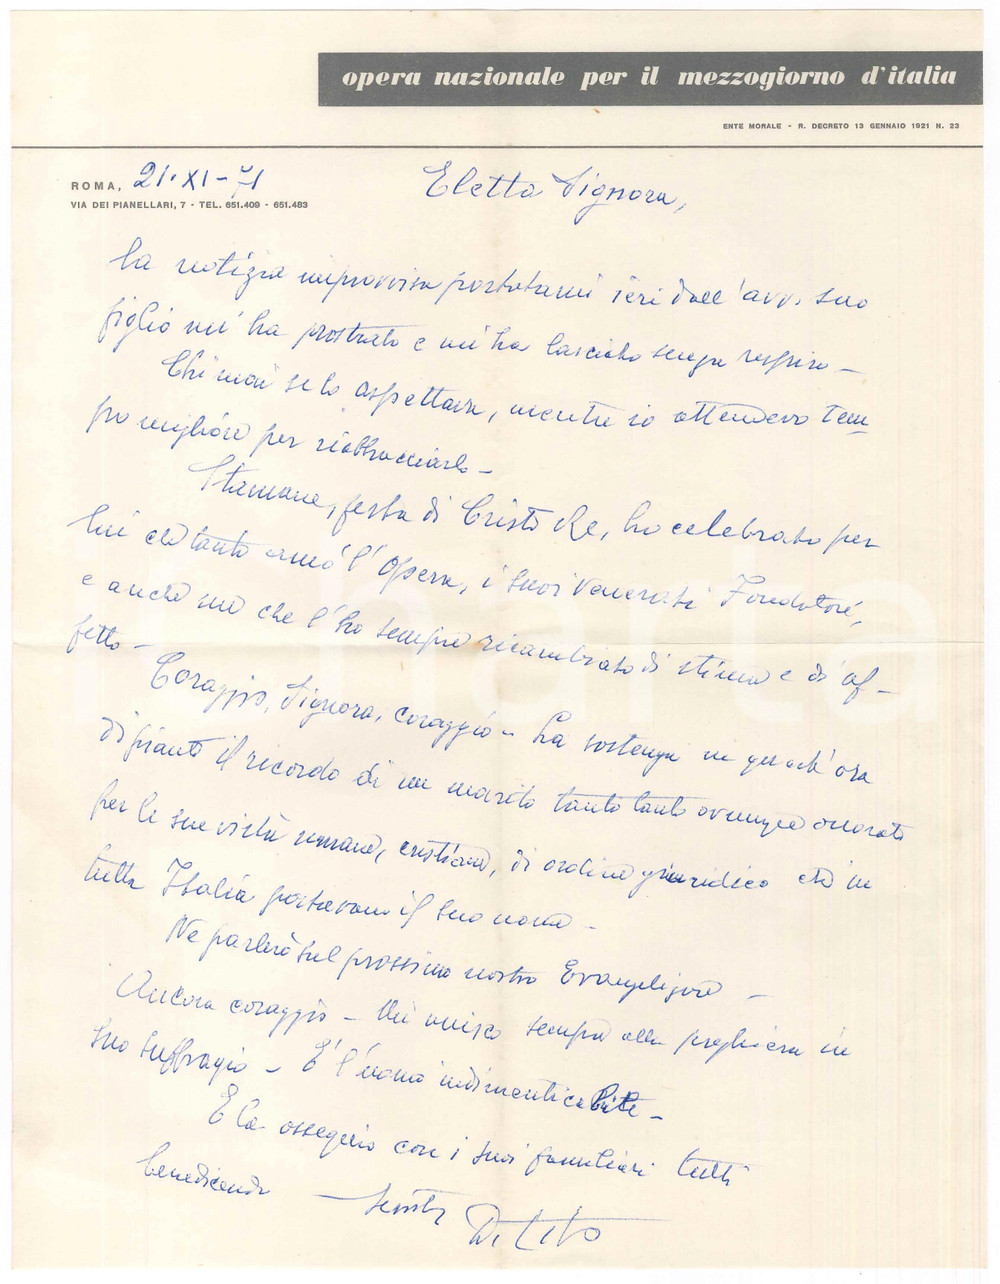 opera nazionale per il mezzogiorno d'italia
ENTE MORALE - R. DECRETO 13 GENNAIO 1921 N. 23
ROMA, 21-XI-71
VIA DEI PIANELLARI, 7 - TEL. 651.409 - 651.483
Eletta Signora,
la notizia improvvisa portatami ieri dall'avv. suo
figlio mi ha prostrato e mi ha lasciato senza respiro -
Chi mai se lo aspettava, mentre io attendevo tem
po migliore per riabbracciarlo -
Stamane, festa di Cristo Re, ho celebrato per
lui che tanto amò l'Opera, i suoi Venerati Fondatori,
e anche me che l'ho sempre ricambiato di stima e di af-
fetto -
Coraggio, Signora, coraggio - La sostenga in quest'ora
di pianto il ricordo di un marito tanto tanto ovunque onorato
per le sue virtù umane, cristiane, di ordine giuridico che in
tutta Italia portavano il suo nome -
Ne parlerò sul prossimo nostro Evangelizare -
Ancora coraggio - Mi unisco sempre alla preghiera in
suo suffragio - È l'uomo indimenticabile -
E la ossequio con i suoi familiari tutti
benedicendo